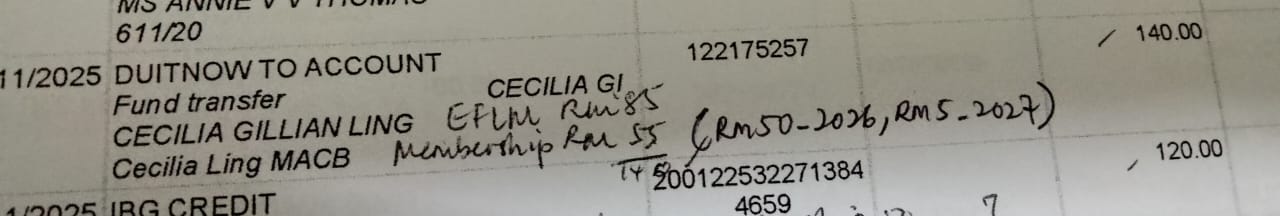 MS ANNIE V V THOMAS
611/20
11/2025 DUITNOW TO ACCOUNT 122175257 140.00
Fund transfer CECILIA GI
CECILIA GILLIAN LING EFLM RM 85
Cecilia Ling MACB Membership RM 55 (RM50-2026, RM5-2027)
200122532271384 120.00
1/2025 IBG CREDIT 4659